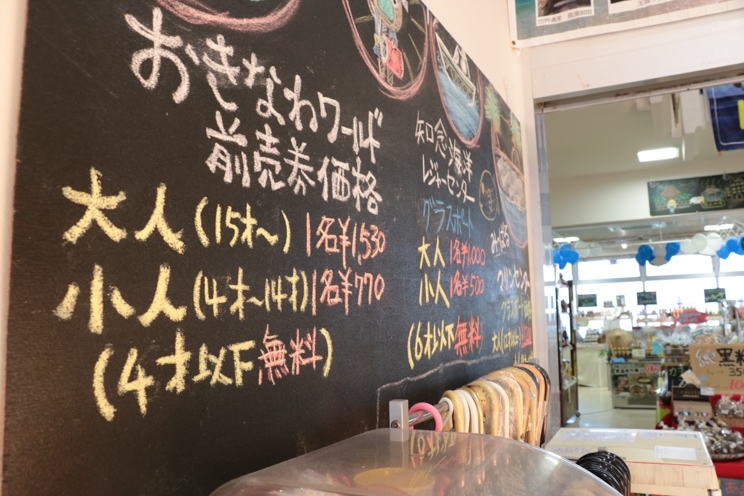 おきなわワールド
前売券価格
大人(15才〜) 1名¥1,530
小人(4才〜14才) 1名¥770
(4才以下無料)
知念海洋
レジャーセンター
グラスボート
大人 1名¥1,000
小人 1名¥500
(6才以下無料)
みばる
マリンセンター
グラスボート
大人
黒糖
35